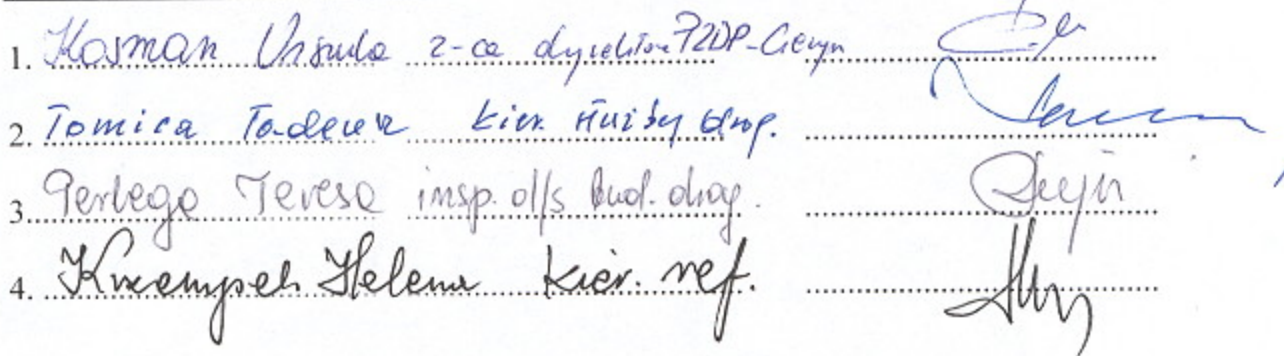 1. Kosman Urszula z-ca dyrektora PZDP-Cieszyn
2. Tomica Tadeusz kier. służby drog.
3. Perlega Teresa insp. d/s bud. drog.
4. Krzempek Helena kier. ref.